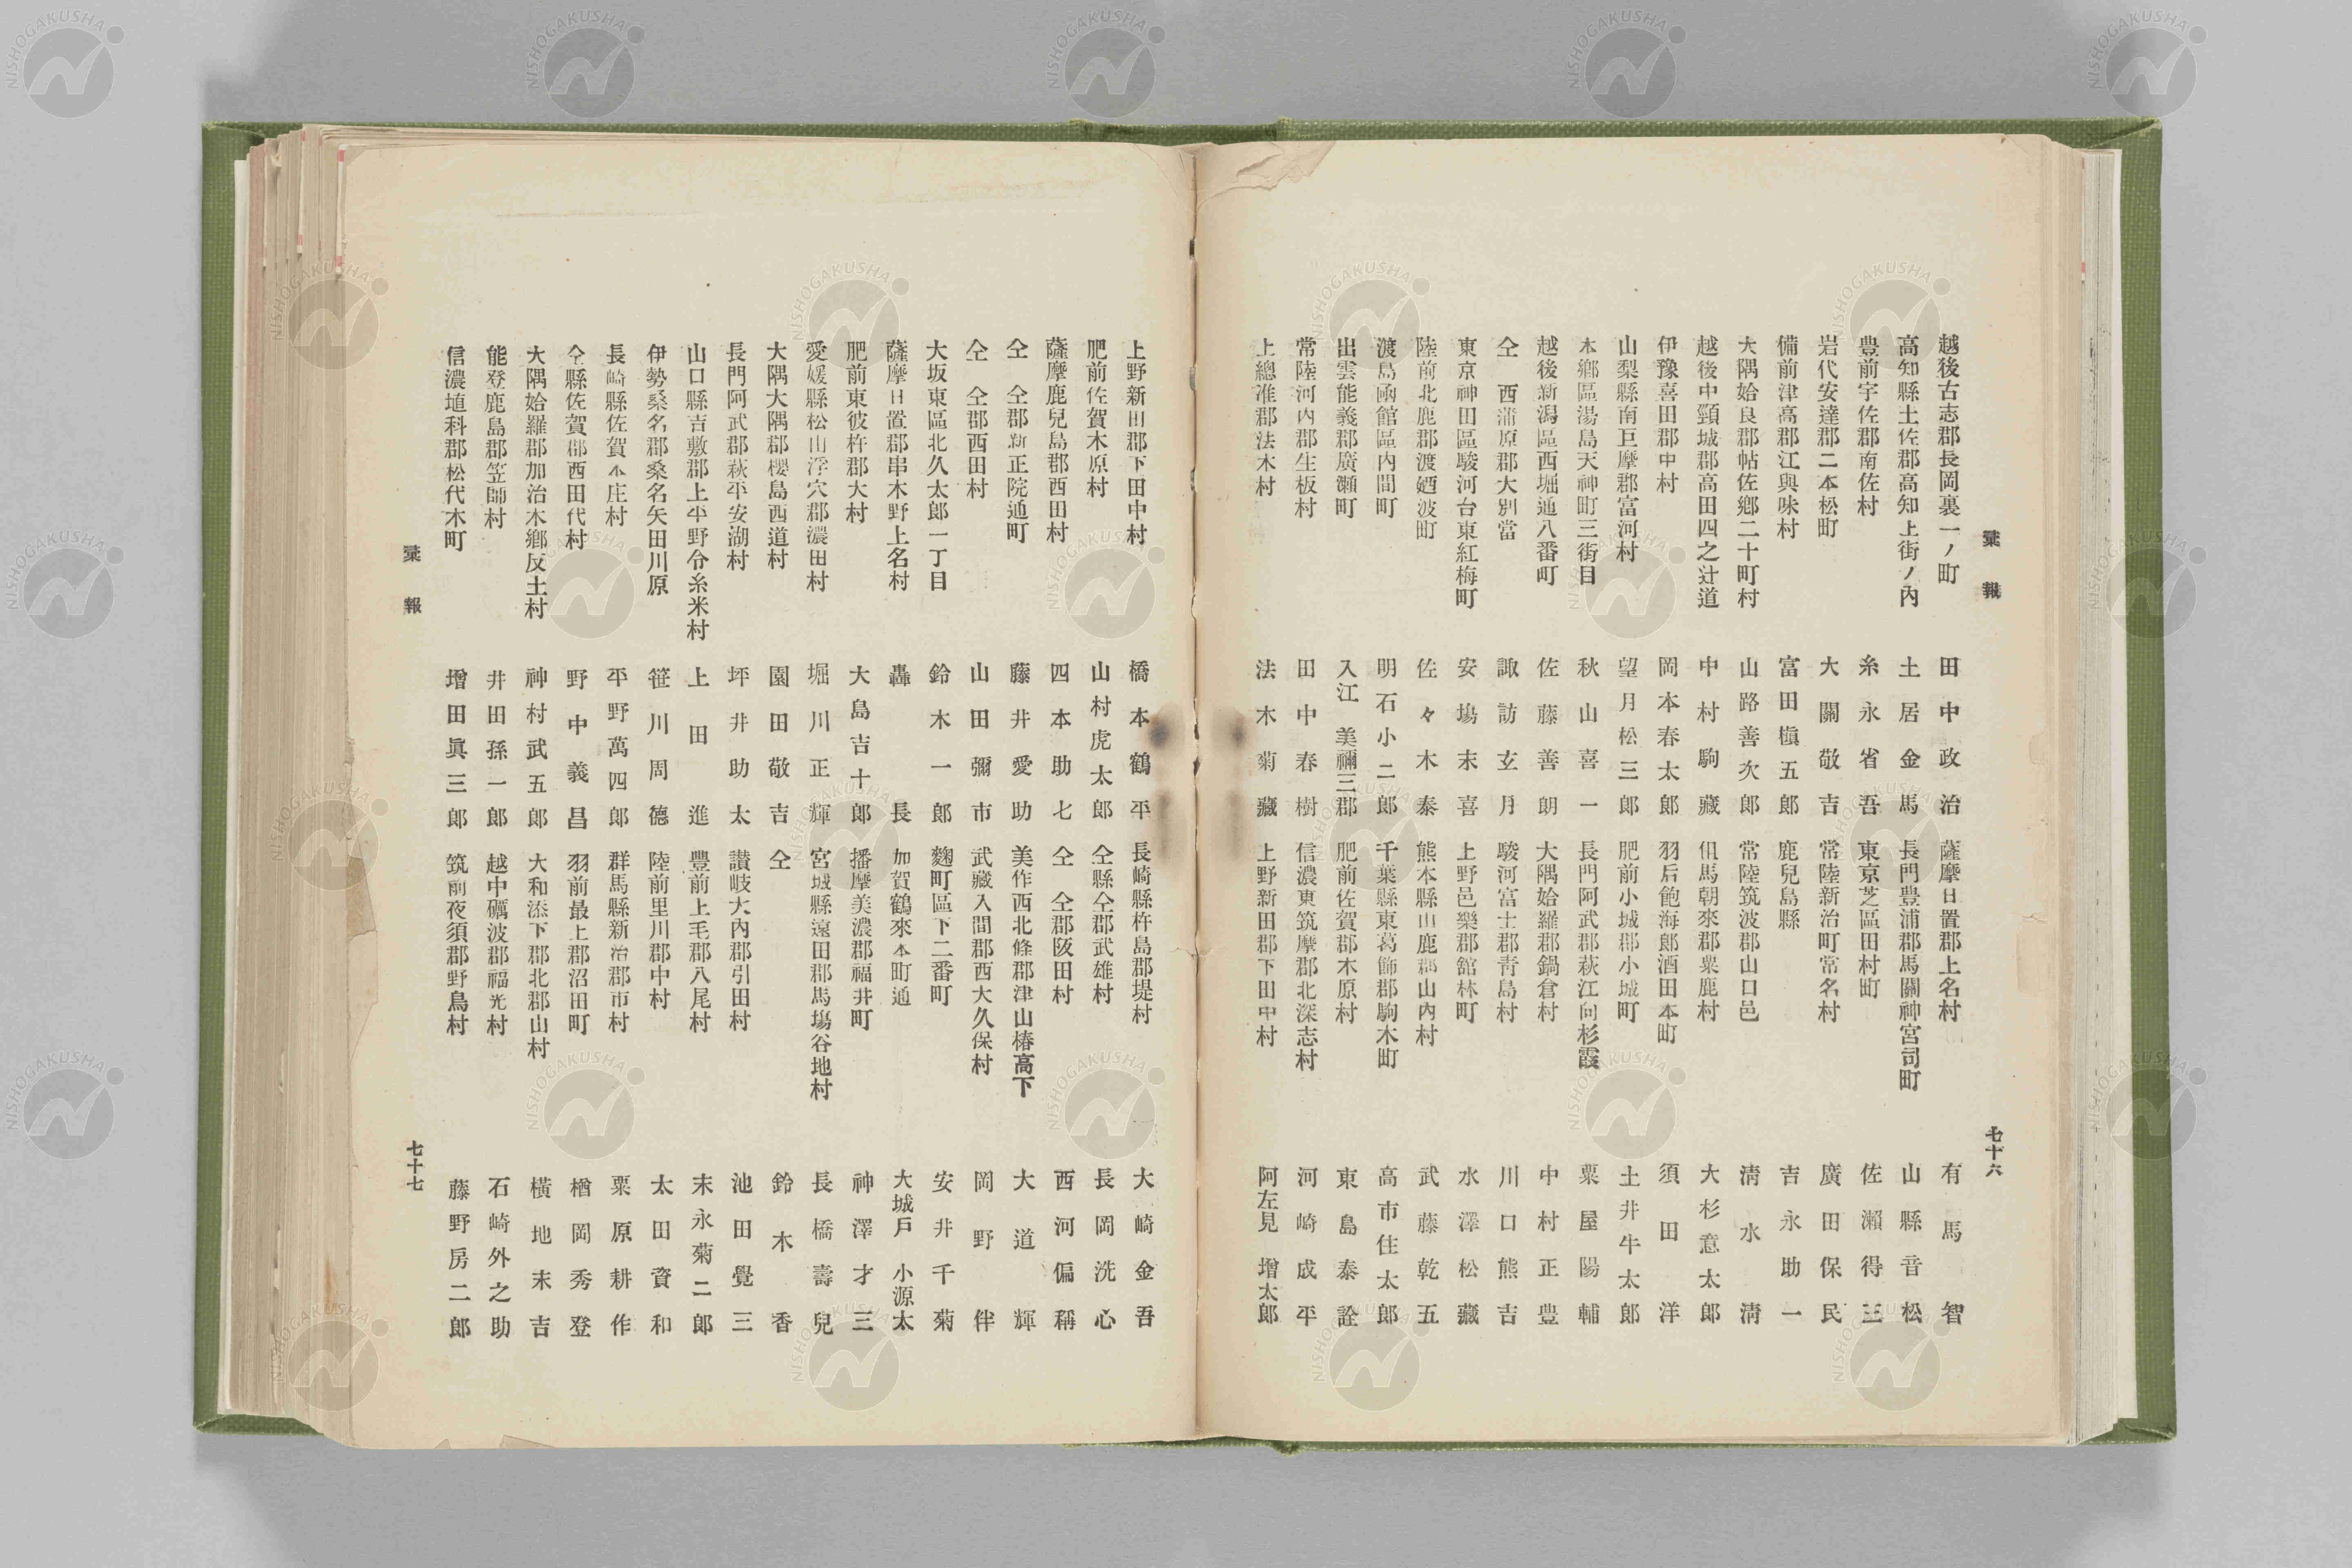 彙報
七十六
越後古志郡長岡裏一ノ町 田中政治
高知縣土佐郡高知上街ノ內 土居金馬
豊前宇佐郡南佐村 糸永省吾
岩代安達郡二本松町 大關敬吉
備前津高郡江與味村 富田槇五郎
大隅姶良郡帖佐鄕二十町村 山路善次郎
越後中頸城郡高田四之辻道 中村駒藏
伊豫喜田郡中村 岡本春太郎
山梨縣南巨摩郡富河村 望月松三郎
本鄕區湯島天神町三街目 秋山喜一
越後新潟區西堀通八番町 佐藤善朗
仝 西蒲原郡大別當 諏訪玄月
東京神田區駿河台東紅梅町 安塲末喜
陸前北鹿郡渡廼波町 佐々木泰
渡島凾館區內間町 明石小二郎
出雲能義郡廣瀨町 入江美禰三郡
常陸河內郡生板村 田中春樹
上總准郡法木村 法木菊藏
薩摩日置郡上名村 有馬智
長門豊浦郡馬關神宮司町 山縣音松
東京芝區田村町 佐瀨得三
常陸新治町常名村 廣田保民
鹿兒島縣 吉永助一
常陸筑波郡山口邑 淸水淸
但馬朝來郡粟鹿村 大杉意太郎
羽后飽海郎酒田本町 須田洋
肥前小城郡小城町 土井牛太郎
長門阿武郡萩江向杉霞 粟屋陽輔
大隅姶羅郡鍋倉村 中村正豊
駿河富士郡靑島村 川口熊吉
上野邑樂郡舘林町 水澤松藏
熊本縣山鹿郡山內村 武藤乾五
千葉縣東葛飾郡駒木町 高市住太郎
肥前佐賀郡木原村 東島泰詮
信濃東筑摩郡北深志村 河崎成平
上野新田郡下田中村 阿左見增太郎
上野新田郡下田中村 橋本鶴平
肥前佐賀木原村 山村虎太郎
薩摩鹿兒島郡西田村 四本助七
仝 仝郡新正院通町 藤井愛助
仝 仝郡西田村 山田彌市
大坂東區北久太郎一丁目 鈴木一郎
薩摩日置郡串木野上名村 轟長
肥前東彼杵郡大村 大島吉十郎
愛媛縣松山浮穴郡濃田村 堀川正輝
大隅大隅郡櫻島西道村 園田敬吉
長門阿武郡萩平安湖村 坪井助太
山口縣吉敷郡上平野仝糸米村 上田進
伊勢桑名郡桑名矢田川原 笹川周德
長崎縣佐賀本庄村 平野萬四郎
仝縣佐賀郡西田代村 野中義昌
大隅姶羅郡加治木鄕反土村 神村武五郎
能登鹿島郡笠師村 井田孫一郎
信濃埴科郡松代木町 增田眞三郎
長崎縣杵島郡堤村 大崎金吾
仝縣仝郡武雄村 長岡洗心
仝 仝郡𨸗田村 西河偏稱
美作西北條郡津山椿高下 大道輝
武藏入間郡西大久保村 岡野伴
麴町區下二番町 安井千菊
加賀鶴來本町通 大城戶小源太
播摩美濃郡福井町 神澤才三
宮城縣遠田郡馬塲谷地村 長橋壽兒
仝 鈴木香
讃岐大內郡引田村 池田覺三
豊前上毛郡八尾村 末永菊二郎
陸前里川郡中村 太田資和
群馬縣新治郡市村 粟原耕作
羽前最上郡沼田町 楢岡秀登
大和添下郡北郡山村 橫地末吉
越中礪波郡福光村 石崎外之助
筑前夜須郡野鳥村 藤野房二郎
彙報
七十七